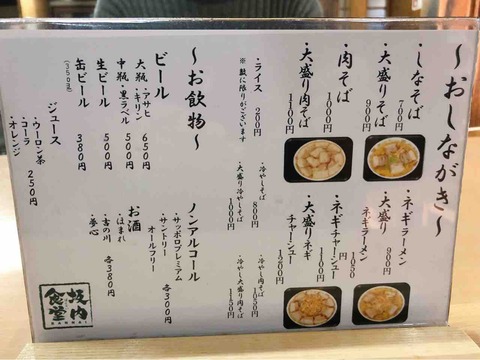 ～おしながき～
・しなそば
700円
・大盛りそば
900円
・肉そば
1000円
・大盛り肉そば
1100円
・ネギラーメン
900円
・大盛り
ネギラーメン
1050円
・ネギチャーシュー
1100円
・大盛りネギ
チャーシュー
1200円
・ライス
200円
※数に限りがございます
・冷やしそば
800円
・大盛り冷やしそば
1000円
・冷やし肉そば
1050円
・冷やし大盛り肉そば
1150円
～お飲物～
ビール
大瓶・アサヒ
・キリン
650円
中瓶・黒ラベル
500円
生ビール
500円
缶ビール
(350ml)
380円
ジュース
・ウーロン茶
・コーラ
・オレンジ
250円
ノンアルコール
・サッポロプレミアム
・サントリー
オールフリー
各300円
お酒
・ほまれ
・吉の川
・夢心
各380円
坂内
食堂
BANNAI